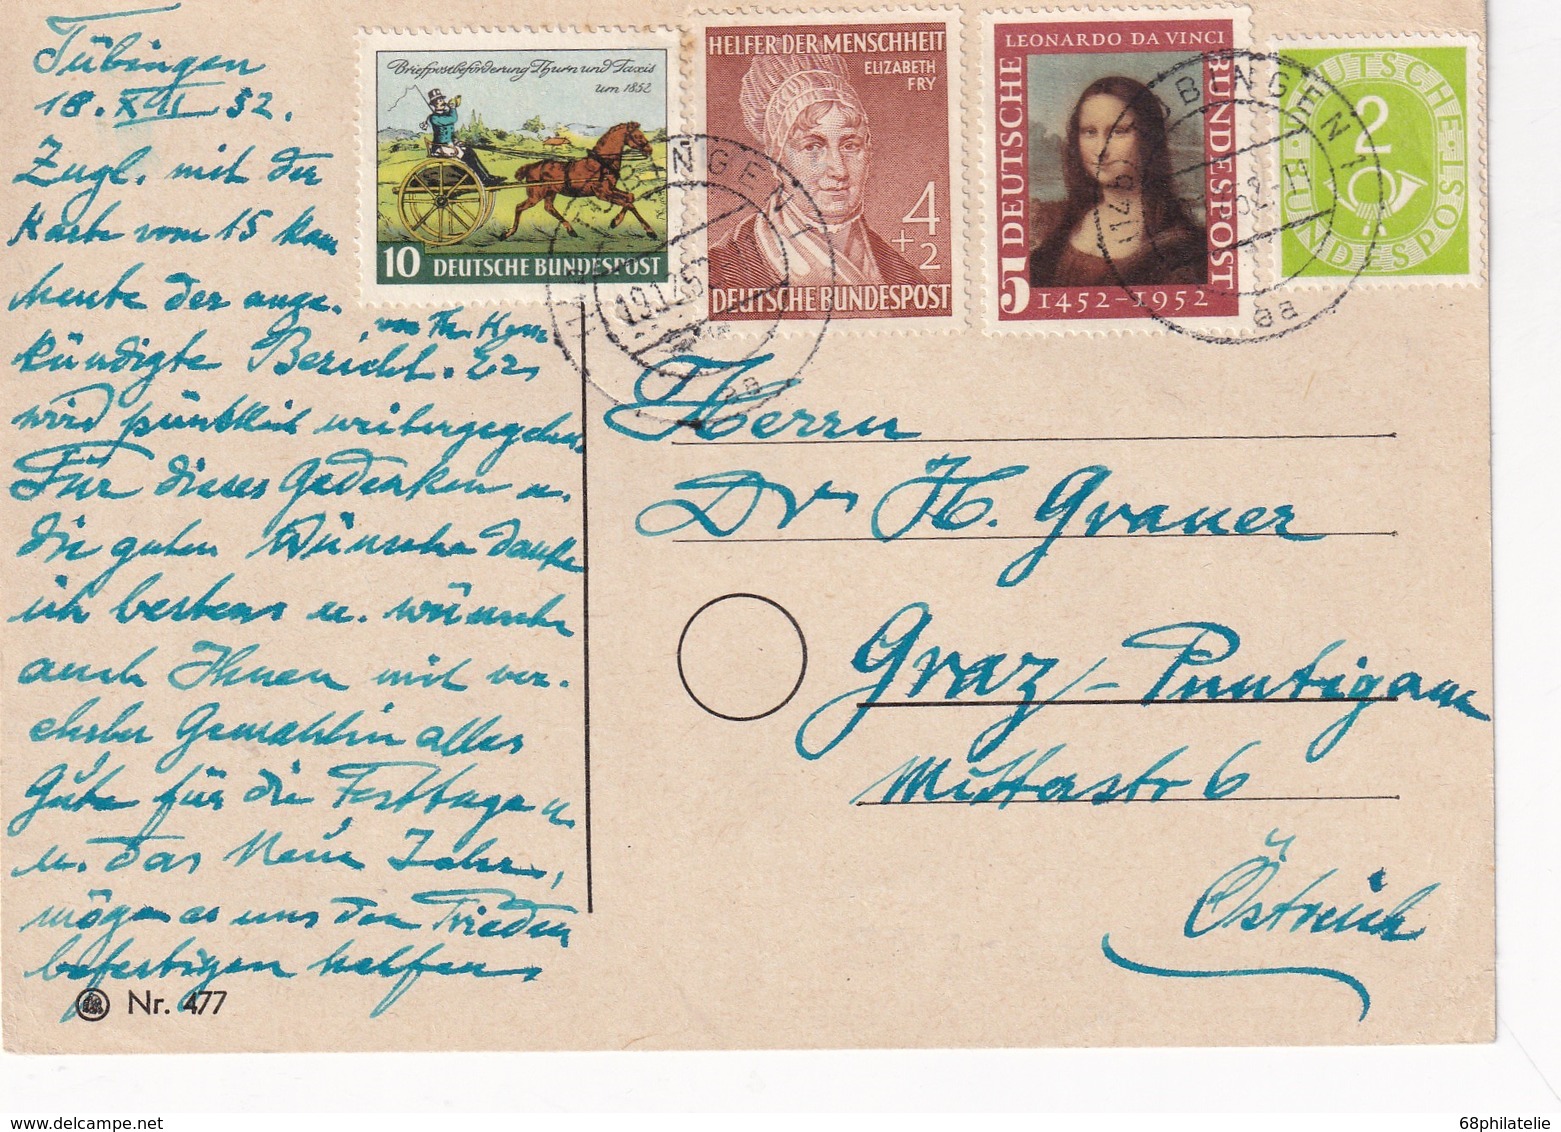 Tübingen
18. XII 52.
Zugl. mit der
Karte vom 15 kam
heute der ange-
kündigte Bericht von Th. Kern. Er
wird pünktlich weitergegeben
Für dieses Gedenken u.
die guten Wünsche danke
ich bestens u. wünsche
auch Ihnen mit ver-
ehrter Gemahlin alles
Gute für die Festtage u.
u. das Neue Jahr,
möge es uns den Frieden
befestigen helfen.
Nr. 477
Briefpostbeförderung Thurn und Taxis
um 1852
10 DEUTSCHE BUNDESPOST
HELFER DER MENSCHHEIT
ELIZABETH
FRY
4
+2
DEUTSCHE BUNDESPOST
LEONARDO DA VINCI
5 DEUTSCHE
BUNDESPOST
1452–1952
2
DEUTSCHE BUNDESPOST
TÜBINGEN 1
aa
TÜBINGEN 1
aa
Herrn
Dr H. Grauer
Graz-Puntigam
Mitterstr 6
Östreich
68philatelie